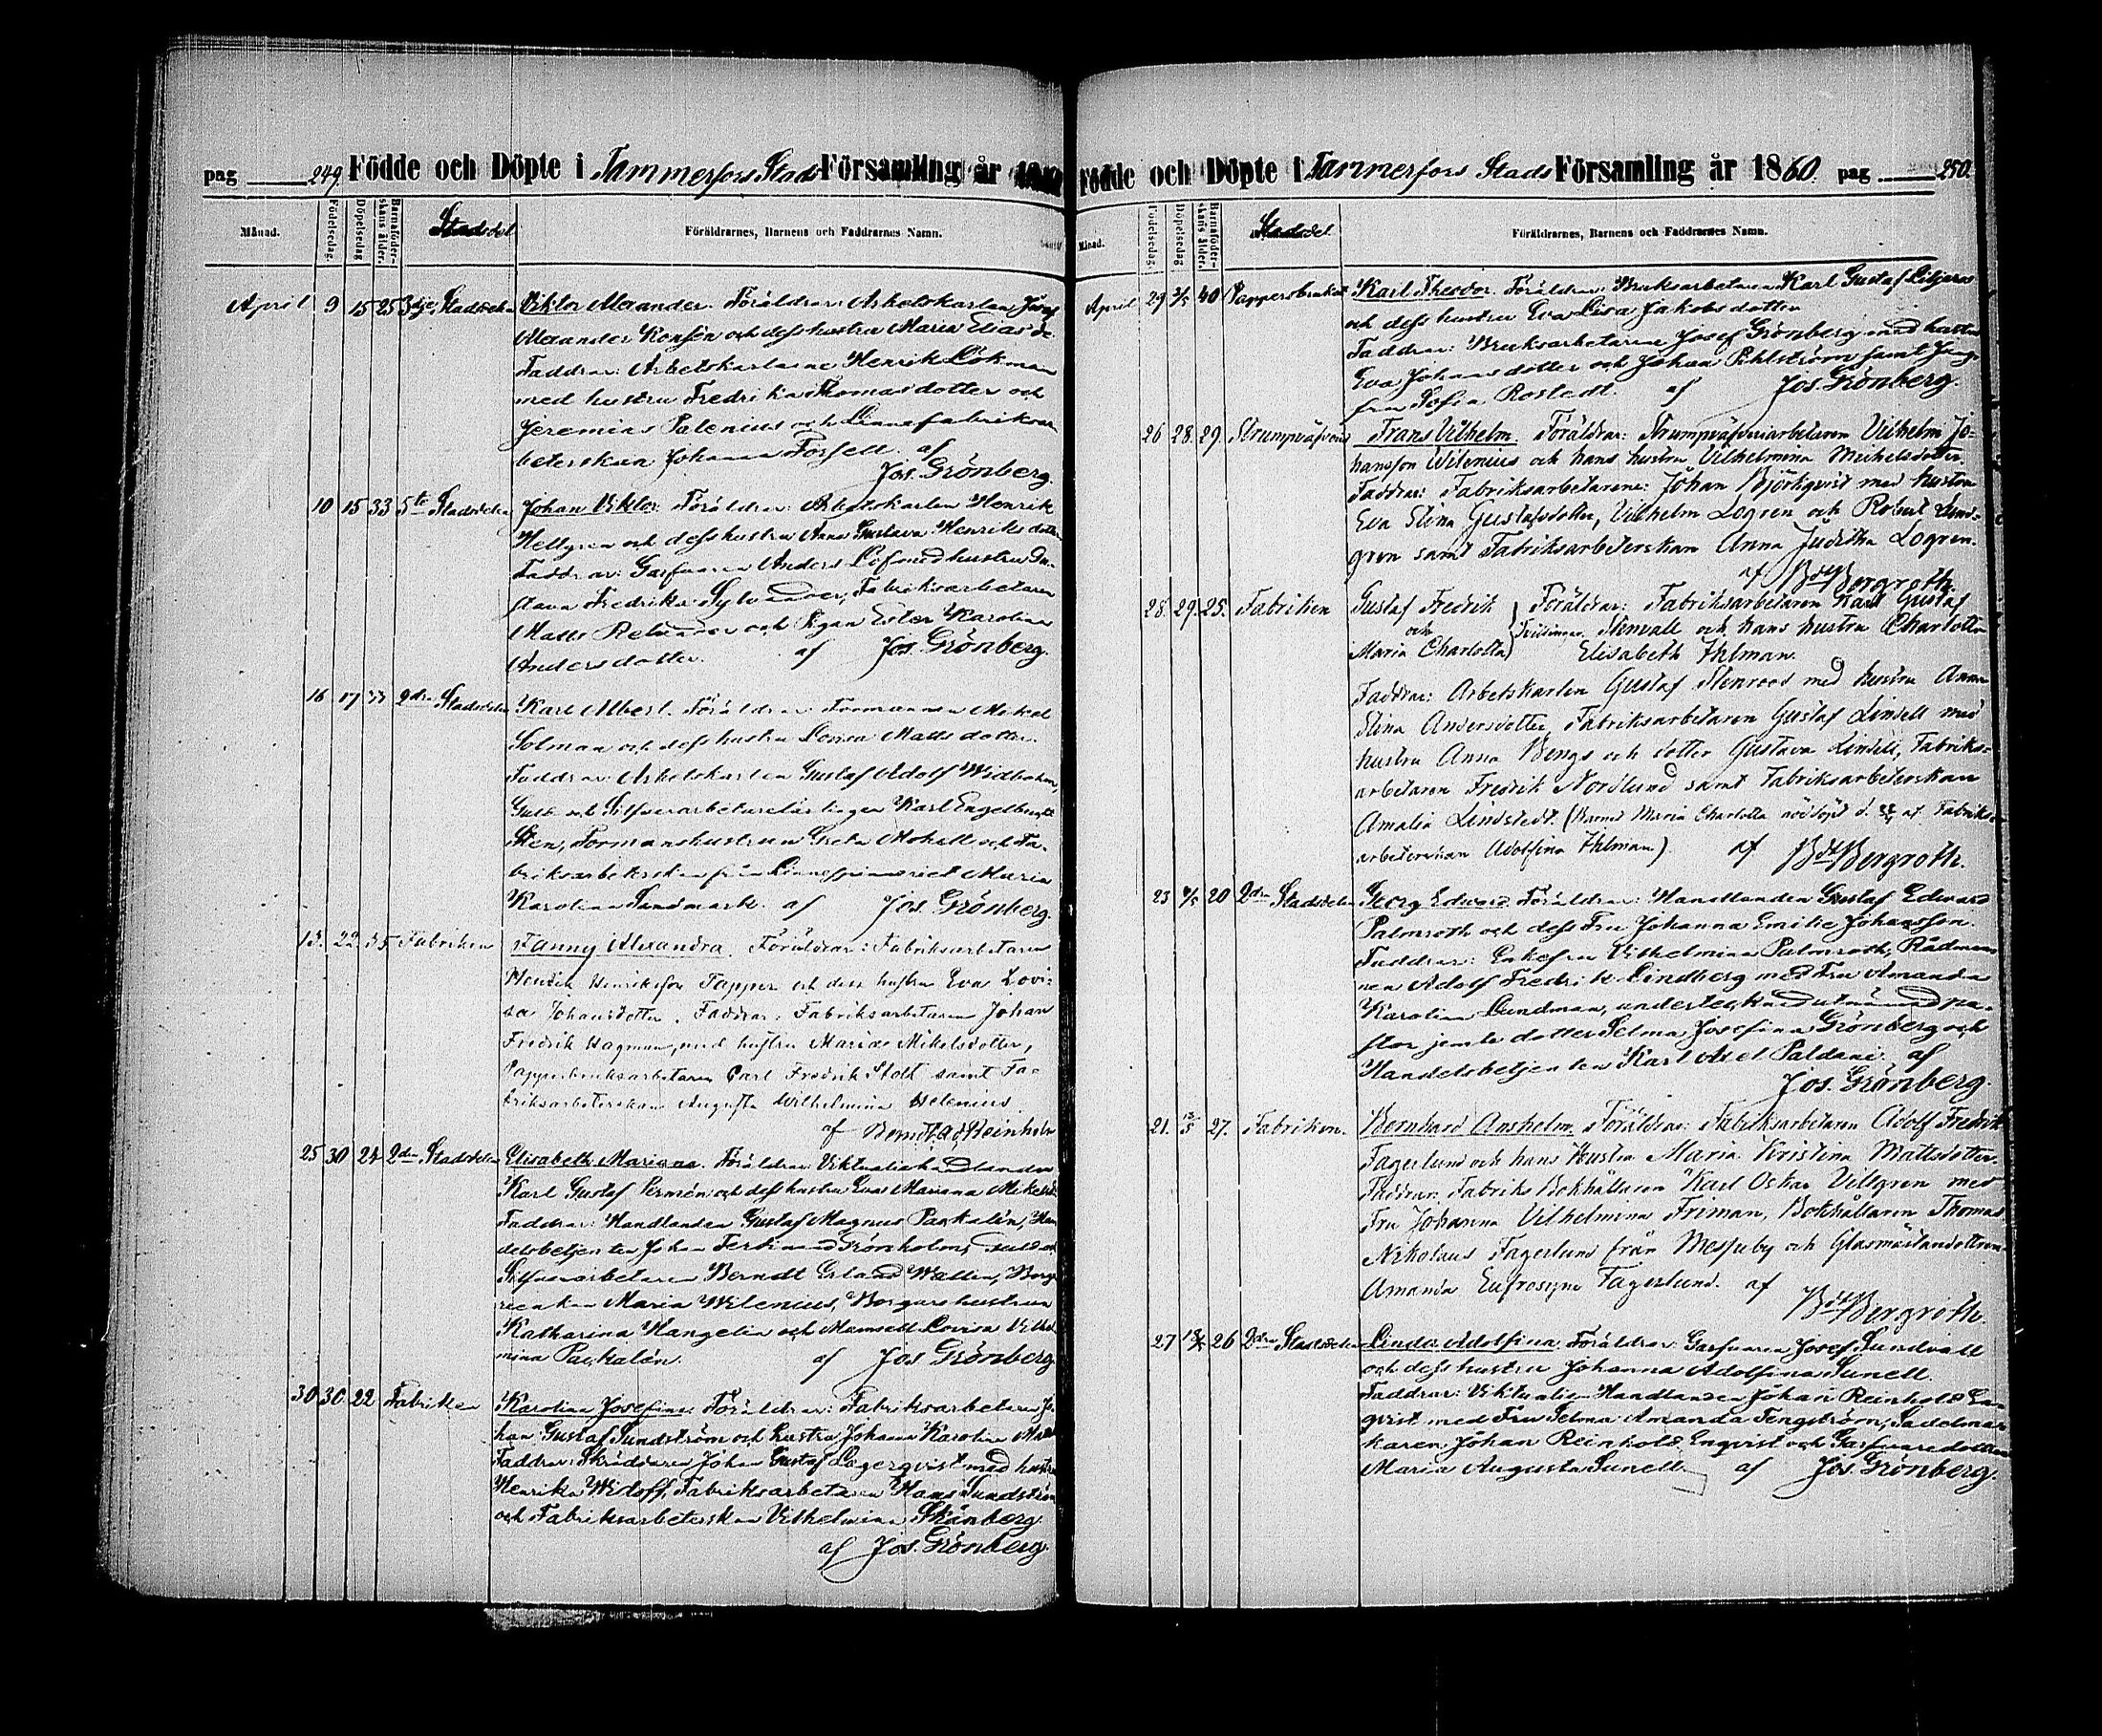 pag 249. Födde och Döpte i Tammerfors Stads Församling år
Månad. Födelsedag. Döpelsedag Barnaföderskans ålder. Stadsdel Föräldrarnes, Barnens och Faddrarnes Namn.
April 9 15 25 3dje Stadsdelen Viktor Alexander. Föräldrar: Arbetskarlen Josef
Alexander Konsén och dess hustru Maria Elias dr.
Faddrar: Arbetskarlarne Henrik Lökman
med hustru Fredrika Thomasdotter och
Jeremias Palenius och Linnefabriksar
beterskan Johanna Forsell af
Jos. Grönberg.
10 15 33 5te Stadsdelen Johan Viktor. Föräldrar: Arbetskarlen Henrik
Hellgren och dess hustru Anna Gustava Henriks dotter
Faddrar: Garfvaren Anders Löf med hustru Gu-
stava Fredrika Sylvander, Fabriksarbetaren
Matts Relander och Pigan Ester Karolina
Andersdotter. af Jos. Grönberg.
16 17 33 2dra Stadsdelen Karl Albert. Föräldrar: Formannen Mikel
Solman och dess hustru Lovisa Matts dotter.
Faddrar: Arbetskarlen Gustaf Adolf Widbohm,
Guld och Silfverarbetarelärlingen Karl Engelbrekt
Sten, Formanshustrun Greta Mokell och Fa-
briksarbeterskan från Linnespinneriet Maria
Karolina Sandmark. af Jos. Grönberg.
13. 22 35 Fabriken Fanny Alexandra. Föräldrar: Fabriksarbetaren
Henrik Henriksson Tapper och dess hustru Eva Lovi-
sa Johansdotter. Faddrar: Fabriksarbetaren Johan
Fredrik Hagman, med hustru Maria Mikelsdotter,
Pappersbruksarbetaren Carl Fredrik Stolt samt Fa-
briksarbeterskan Augusta Wilhelmina Helenius
af Berndt Ad. Reinholm
25 30 24 2dra Stadsdelen Elisabeth Mariana. Föräldrar: Viktualiehandlanden
Karl Gustaf Permén och dess hustru Eva Mariana Mikelsdr
Faddrar: Handlanden Gustaf Magnus Paqkalén, Han
delsbetjenten Johan Ferdinand Grönholm, Guld och
Silfverarbetaren Berndt Erland Wallin, Borga
reenkan Maria Wilenius, Borgarehustrun
Katharina Hangelin och Mamsell Lovisa Vilhel
mina Paqkalén. af Jos Grönberg
30 30 22 Fabriken Karolina Josefina. Föräldrar: Fabriksarbetaren Jo
han Gustaf Sundström och hustru Johanna Karolina
Faddrar: Skräddaren Johan Gustaf Lagerqvist med hustru
Henrika Widoff, Fabriksarbetaren Hans Sundström
och Fabriksarbeterskan Vilhelmina Skänberg.
af Jos. Grönberg.
Födde och Döpte i Tammerfors Stads Församling år 1860. pag 250.
Månad. Födelsedag. Döpelsedag Barnaföderskans ålder. Stadsdel. Föräldrarnes, Barnens och Faddrarnes Namn.
April 29 2/5 40 Pappersbruket Karl Theodor. Föräldrar: Bruksarbetaren Karl Gustaf Liljeros
och dess hustru Eva Lisa Jakobsdotter
Faddrar: Bruksarbetarene Josef Grönberg med hustru
Eva Johansdotter och Johan Pihlström samt Jung-
frun Sofia Rostedt. af Jos. Grönberg.
26 28. 29. Strumpväfveriet Frans Vilhelm. Föräldrar: Strumpväfveriarbetaren Vilhelm Jo-
hansson Wilenius och hans hustru Vilhelmina Michelsdotter
Faddrar: Fabriksarbetarene: Johan Björkqvist med hustru
Eva Stina Gustafsdotter, Vilhelm Logren och Robert Lind-
gren samt Fabriksarbeterskan Anna Juditha Logren.
af Bdt Bergroth.
28. 29. 25. Fabriken Gustaf Fredrik Föräldrar: Fabriksarbetaren Karl Gustaf
och Tvillingar Stenvall och hans hustru Charlotta
Maria Charlotta Elisabeth Ihlman.
Faddrar: Arbetskarlen Gustaf Stenroos med hustru Anna
Stina Andersdotter, Fabriksarbetaren Gustaf Lindell med
hustru Anna Bengs och dotter Gustava Lindell, Fabriks-
arbetaren Fredrik Nordlund samt Fabriksarbeterskan
Amalia Lindstedt. (Barnet Maria Charlotta nöddöpt d. af Fabriks-
arbeterskan Adolfina Ihlman). af Bdt Bergroth.
23 6/5 20 2dra Stadsdelen Georg Edward. Föräldrar: Handlanden Gustaf Edward
Palmroth och dess Fru Johanna Emilie Johansson.
Faddrar: Enkefru Vilhelmina Palmroth, Rådman-
nen Adolf Fredrik Lindberg med Fru Amanda
Karolina Lundman, undertecknad utnämnd pa-
stor jemte dotter Selma Josefina Grönberg och
Handelsbetjenten Karl Axel Paldani. af
Jos. Grönberg.
21. 13/5 27. Fabriken. Bernhard Anshelm. Föräldrar: Fabriksarbetaren Adolf Fredrik
Fagerlund och hans Hustru Maria Kristina Mattsdotter.
Faddrar: Fabriks Bokhållaren Karl Oskar Villgren med
Fru Johanna Vilhelmina Friman, Bokhållaren Thomas
Nikolaus Fagerlund från Messuby och Glasmästardottren
Amanda Eufrosyne Fagerlund. af
Bdt Bergroth.
27 13/5 26 2dra Stadsdelen Linda Adolfina. Föräldrar: Garfvaren Josef Sundvall
och dess hustru Johanna Adolfina Sunell.
Faddrar: Viktualie Handlanden Johan Reinhold En-
qvist med Fru Selma Amanda Tengström, Sadelma-
karen Johan Reinhold Enqvist och Garfvaredottren
Maria Augusta Sunell af Jos. Grönberg.